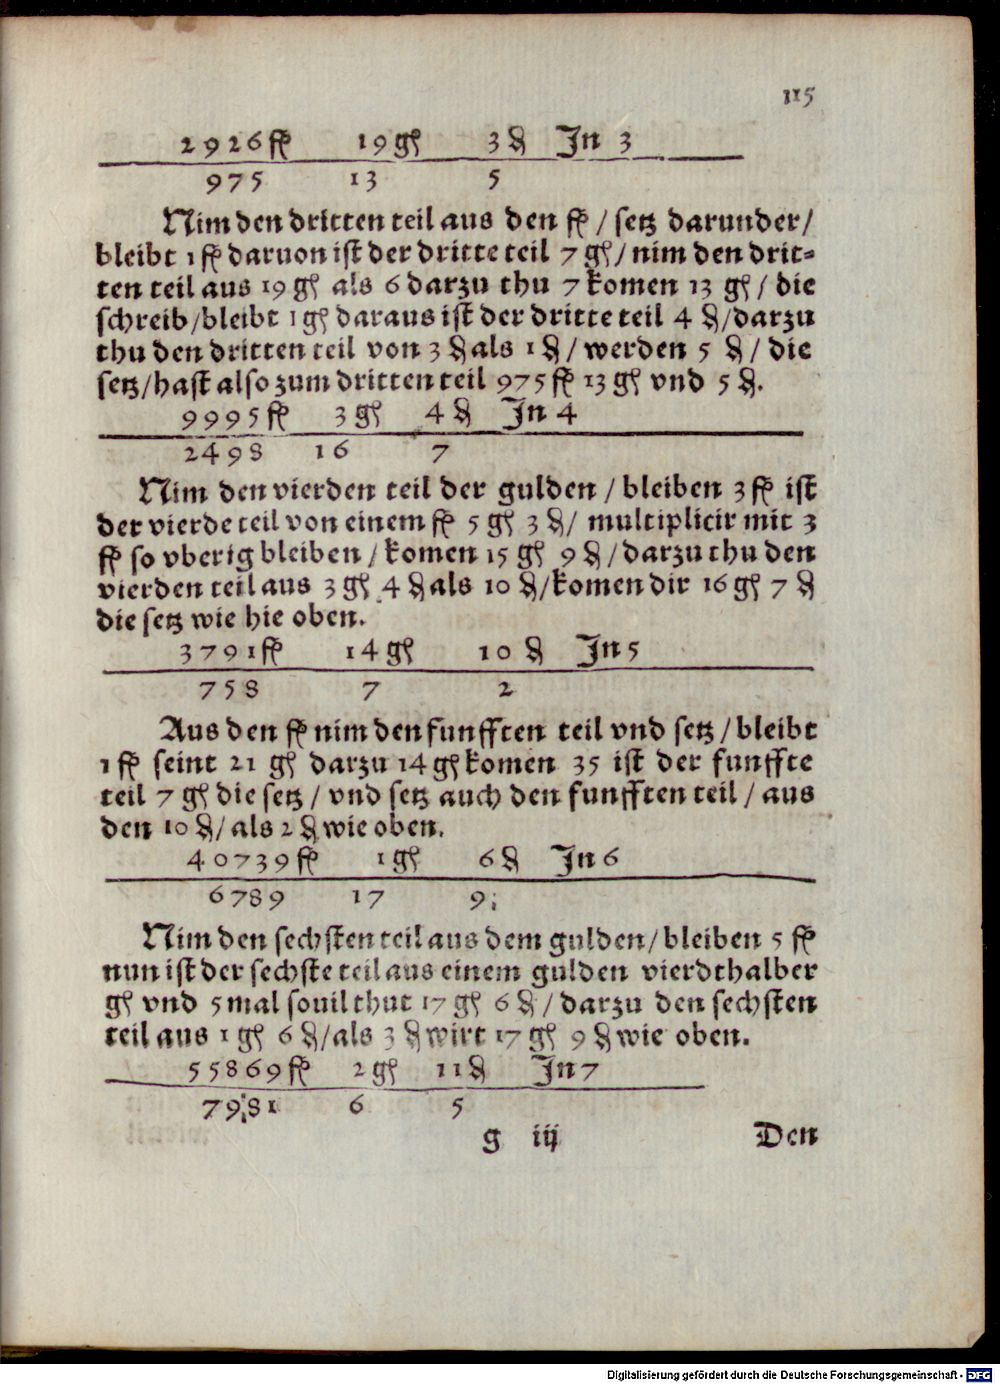 115
2926 fl 19 gl 3 ₰ In 3
975 13 5
Nim den dritten teil aus den fl / setz darunder /
bleibt 1 fl daruon ist der dritte teil 7 gl / nim den drit=
ten teil aus 19 gl als 6 darzu thu 7 komen 13 gl / die
schreib / bleibt 1 gl daraus ist der dritte teil 4 ₰ / darzu
thu den dritten teil von 3 ₰ als 1 ₰ / werden 5 ₰ / die
setz / hast also zum dritten teil 975 fl 13 gl vnd 5 ₰.
9995 fl 3 gl 4 ₰ In 4
2498 16 7
Nim den vierden teil der gulden / bleiben 3 fl ist
der vierde teil von einem fl 5 gl 3 ₰ / multiplicir mit 3
fl so vberig bleiben / komen 15 gl 9 ₰ / darzu thu den
vierden teil aus 3 gl 4 ₰ als 10 ₰ / komen dir 16 gl 7 ₰
die setz wie hie oben.
3791 fl 14 gl 10 ₰ In 5
758 7 2
Aus den fl nim den funfften teil vnd setz / bleibt
1 fl seint 21 gl darzu 14 gl komen 35 ist der funffte
teil 7 gl die setz / vnd setz auch den funfften teil / aus
den 10 ₰ / als 2 ₰ wie oben.
40739 fl 1 gl 6 ₰ In 6
6789 17 9
Nim den sechsten teil aus dem gulden / bleiben 5 fl
nun ist der sechste teil aus einem gulden vierdthalber
gl vnd 5 mal souil thut 17 gl 6 ₰ / darzu den sechsten
teil aus 1 gl 6 ₰ / als 3 ₰ wirt 17 gl 9 ₰ wie oben.
55869 fl 2 gl 11 ₰ In 7
7981 6 5
g iij Den
Digitalisierung gefördert durch die Deutsche Forschungsgemeinschaft - DFG